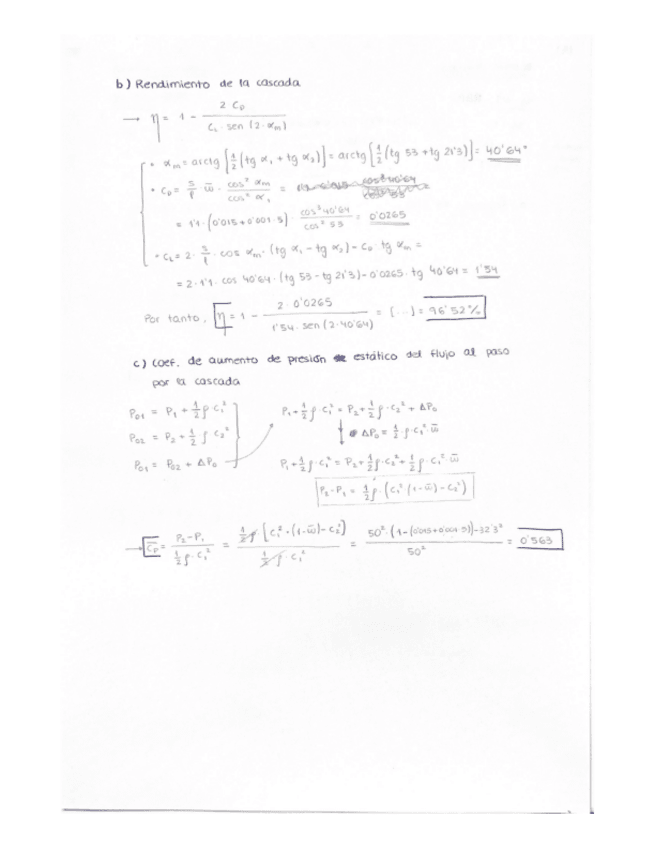 b) Rendimiento de la cascada
→ η = 1 - 2 C_D / (C_L · sen (2·α_m))
• α_m = arctg [1/2 (tg α₁ + tg α₂)] = arctg [1/2 (tg 53 + tg 21'3)] = 40'64°
• C_D = s/l · ω̄ · cos³ α_m / cos² α₁ =
= 1'1 · (0'015 + 0'001·5) · cos³ 40'64 / cos² 53 = 0'0265
• C_L = 2 · s/l · cos α_m · (tg α₁ - tg α₂) - C_D · tg α_m =
= 2·1'1 · cos 40'64 · (tg 53 - tg 21'3) - 0'0265 · tg 40'64 = 1'54
Por tanto, η = 1 - 2·0'0265 / (1'54 · sen (2·40'64)) = (...) = 96'52%
c) Coef. de aumento de presión estático del flujo al paso
por la cascada
P₀₁ = P₁ + 1/2 ρ·C₁²
P₀₂ = P₂ + 1/2 ρ C₂²
P₀₁ = P₀₂ + ΔP₀
P₁ + 1/2 ρ·C₁² = P₂ + 1/2 ρ·C₂² + ΔP₀
↓ ΔP₀ = 1/2 ρ·C₁² ω̄
P₁ + 1/2 ρ·C₁² = P₂ + 1/2 ρ·C₂² + 1/2 ρ·C₁² · ω̄
P₂ - P₁ = 1/2 ρ · (C₁² (1 - ω̄) - C₂²)
→ C̄_p = (P₂ - P₁) / (1/2 ρ·C₁²) = 1/2 ρ · [C₁² · (1 - ω̄) - C₂²] / (1/2 ρ · C₁²) = 50² · (1 - (0'015 + 0'001·5)) - 32'3² / 50² = 0'563